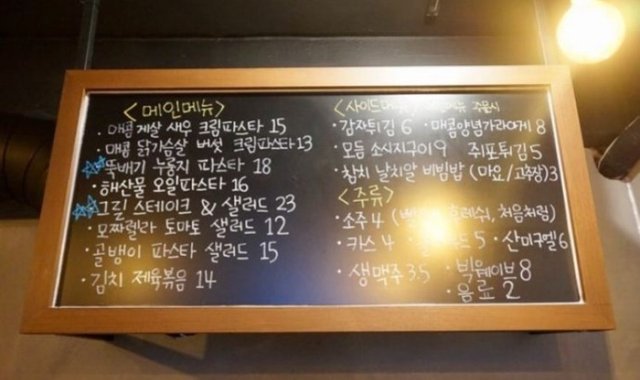 <메인메뉴>
· 매콤 게살 새우 크림파스타 15
· 매콤 닭가슴살 버섯 크림파스타 13
뚝배기 누룽지 파스타 18
· 해산물 오일파스타 16
그릴 스테이크 & 샐러드 23
· 모짜렐라 토마토 샐러드 12
· 골뱅이 파스타 샐러드 15
· 김치 제육볶음 14
<사이드메뉴 주문시
· 감자튀김 6 · 매콤양념가라아게 8
· 모듬 소시지구이 9 · 쥐포튀김 5
· 참치 날치알 비빔밥 (마요/고추장) 3
<주류>
· 소주 4 ( 후레쉬, 처음처럼)
· 카스 4 · 5 · 산미구엘 6
· 생맥주 3.5 · 빅웨이브 8
· 음료 2